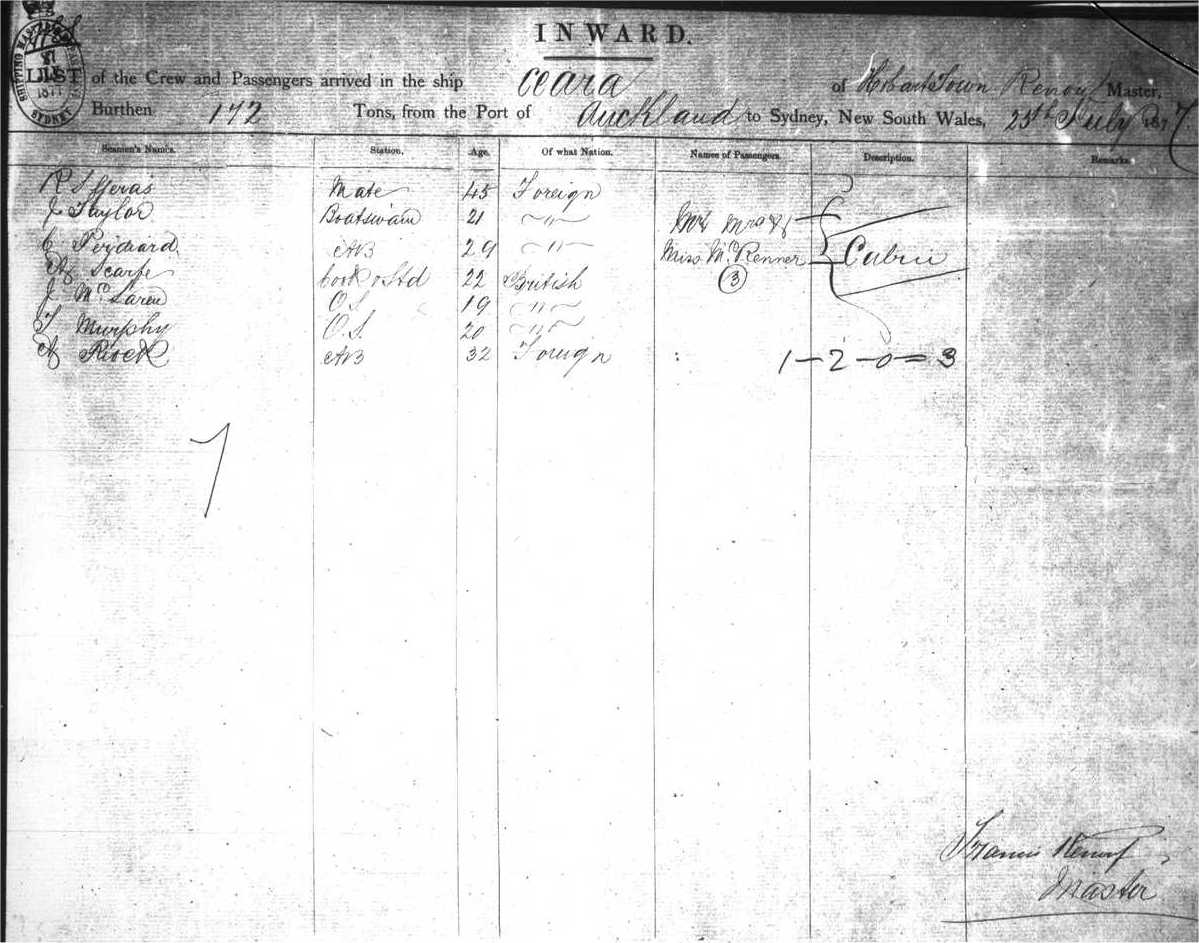 INWARD.
LIST of the Crew and Passengers arrived in the ship Ceara of Hobart Town Master,
Burthen 172 Tons, from the Port of Auckland to Sydney, New South Wales, 25th July 1877
Seamen's Names. Station. Age. Of what Nation. Names of Passengers. Description. Remarks.
Mate 45 Foreign
J Taylor Boatswain 21 〃 Mr Mrs &
C 29 〃 Miss Mc Kenner Cabin
Scarfe Cook & Std 22 British (3)
J McLaren O.S. 19 〃
T Murphy O.S. 20 〃
AB 32 Foreign 1-2-0=3
7
Francis
Master
SYDNEY